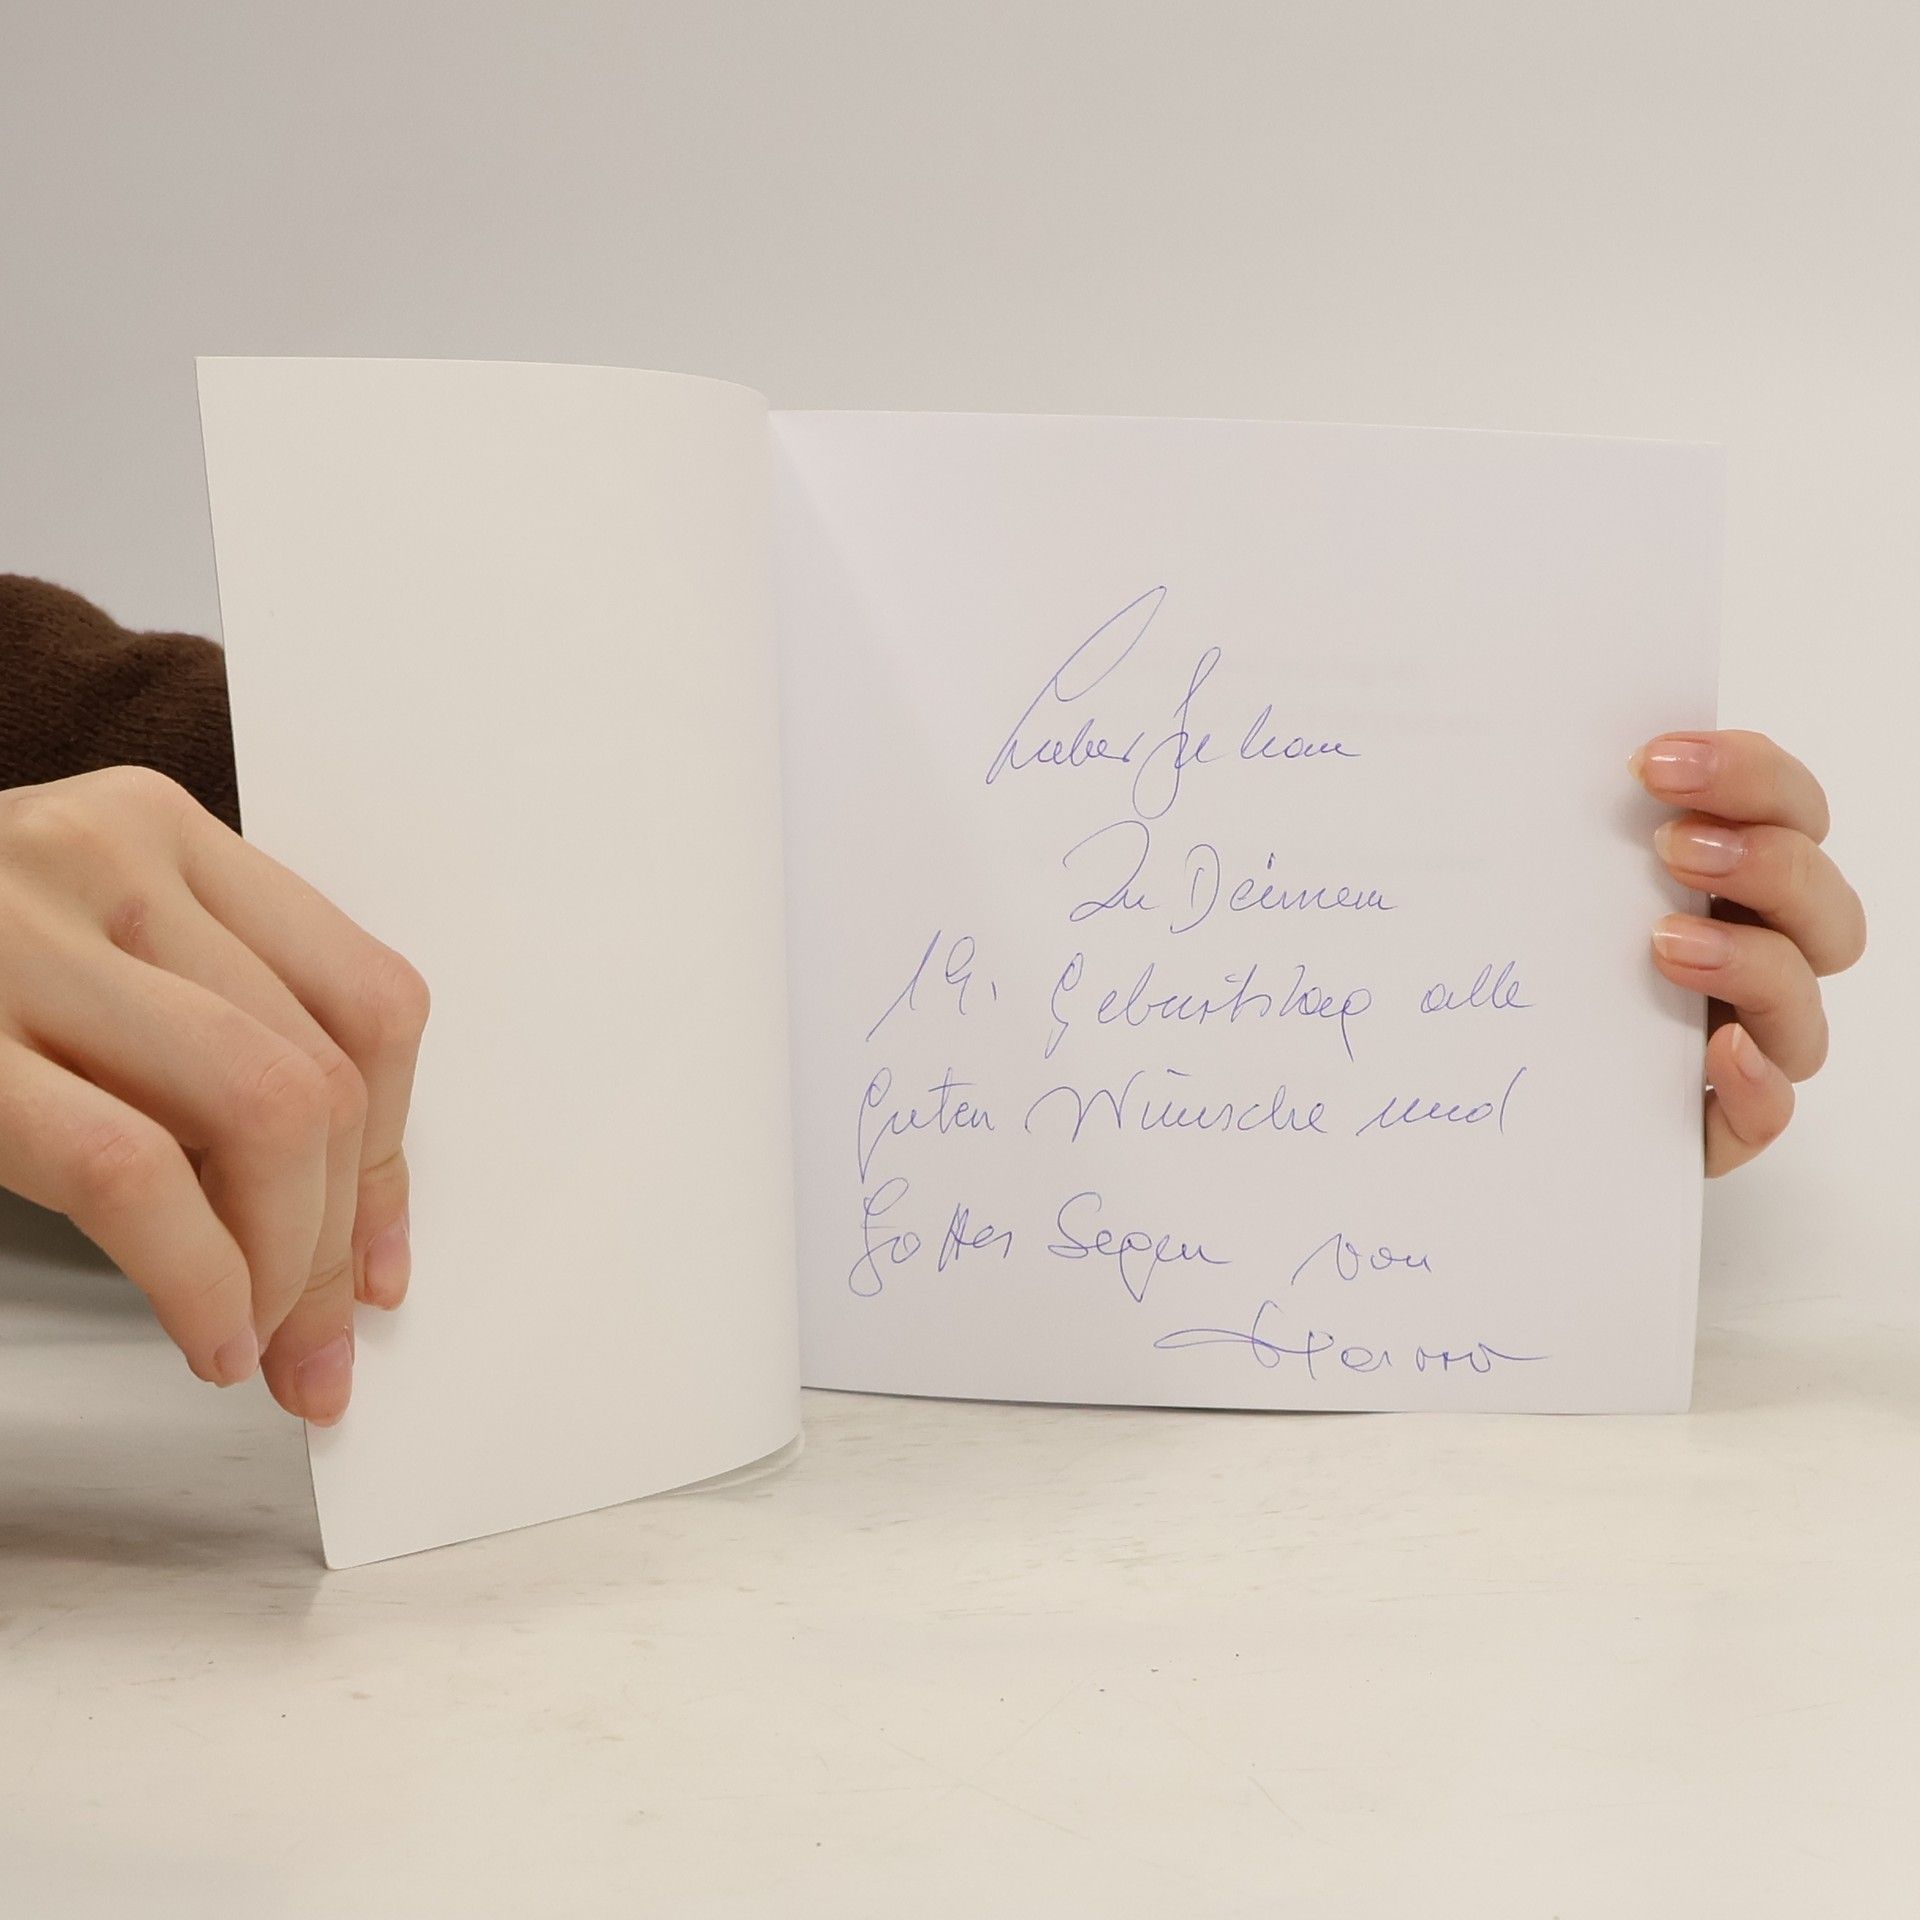 Lieber Jehan
Zu Deinem
19. Geburtstag alle
Guten Wünsche und
Gottes Segen von